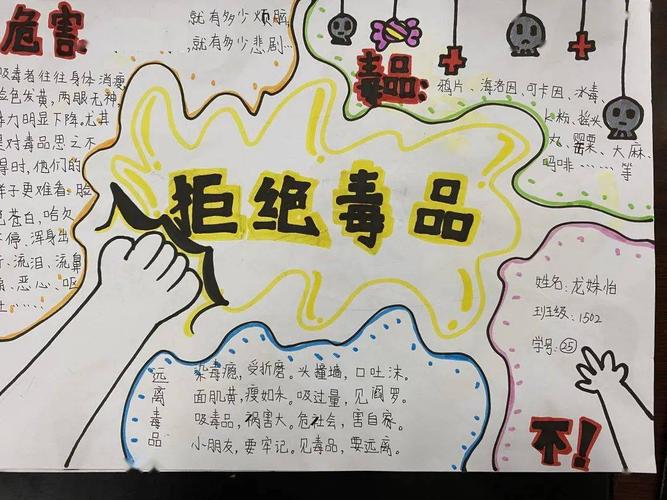 危害
就有多少烦脑
,就有多少悲剧...
吸毒者往往身体消瘦
脸色发黄,两眼无神,
力明显下降。尤其
是对毒品思之不
得时,他们的
样子更难看。脸
色苍白,哈欠
不停、浑身出
、流泪、流鼻
、恶心、呕
吐......
毒品:
鸦片、海洛因、可卡因、冰毒、
K粉、摇头
丸、罂粟、大麻、
吗啡……等
拒绝毒品
姓名:龙姝怡
班级:1502
学号:25
不!
远离毒品
染毒瘾,受折磨。头撞墙,口吐沫。
面肌黄,瘦如木。吸过量,见阎罗。
吸毒品,祸害大。危社会,害自家。
小朋友,要牢记。见毒品,要远离。